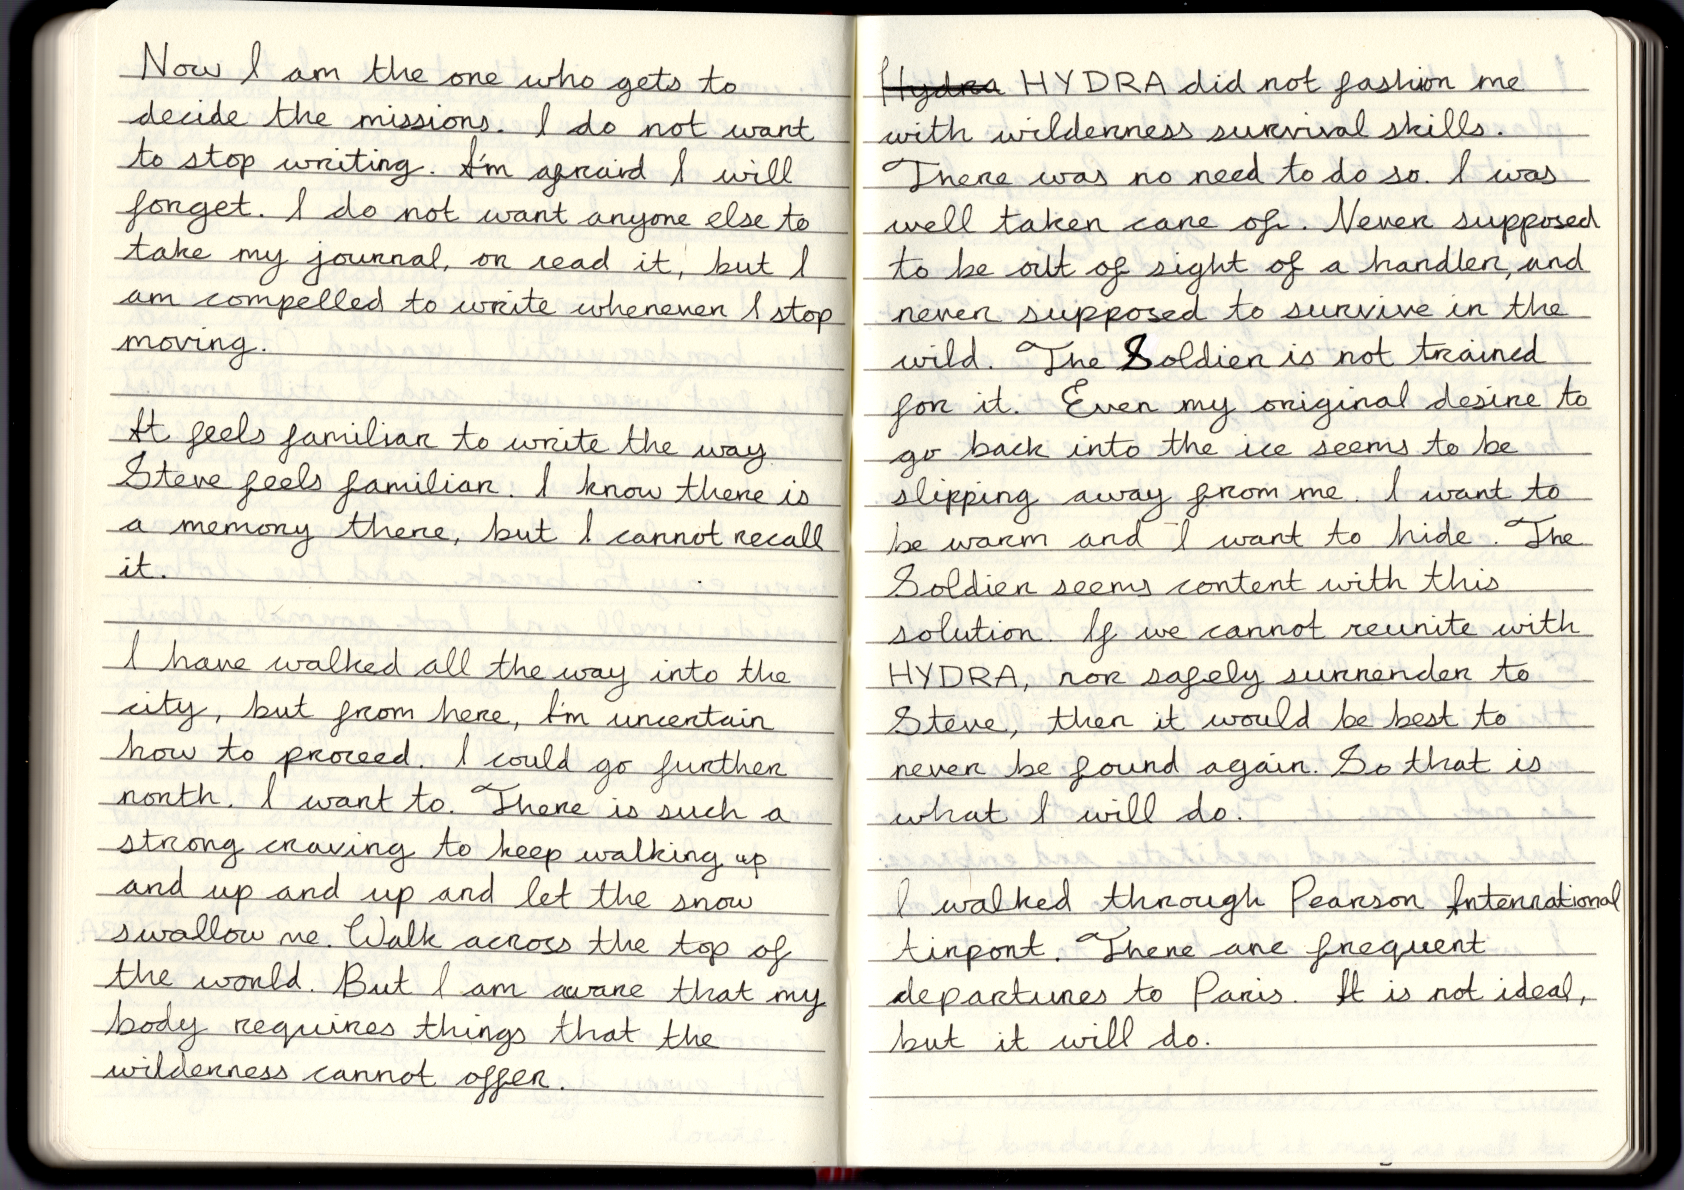 Now I am the one who gets to
decide the missions. I do not want
to stop writing. I'm afraid I will
forget. I do not want anyone else to
take my journal, or read it, but I
am compelled to write whenever I stop
moving.
It feels familiar to write the way
Steve feels familiar. I know there is
a memory there, but I cannot recall
it.
I have walked all the way into the
city, but from here, I'm uncertain
how to proceed. I could go further
north. I want to. There is such a
strong craving to keep walking up
and up and up and let the snow
swallow me. Walk across the top of
the world. But I am aware that my
body requires things that the
wilderness cannot offer.
Hydra HYDRA did not fashion me
with wilderness survival skills.
There was no need to do so. I was
well taken care of. Never supposed
to be out of sight of a handler, and
never supposed to survive in the
wild. The Soldier is not trained
for it. Even my original desire to
go back into the ice seems to be
slipping away from me. I want to
be warm and I want to hide. The
Soldier seems content with this
solution. If we cannot reunite with
HYDRA, nor safely surrender to
Steve, then it would be best to
never be found again. So that is
what I will do.
I walked through Pearson International
Airport. There are frequent
departures to Paris. It is not ideal,
but it will do.